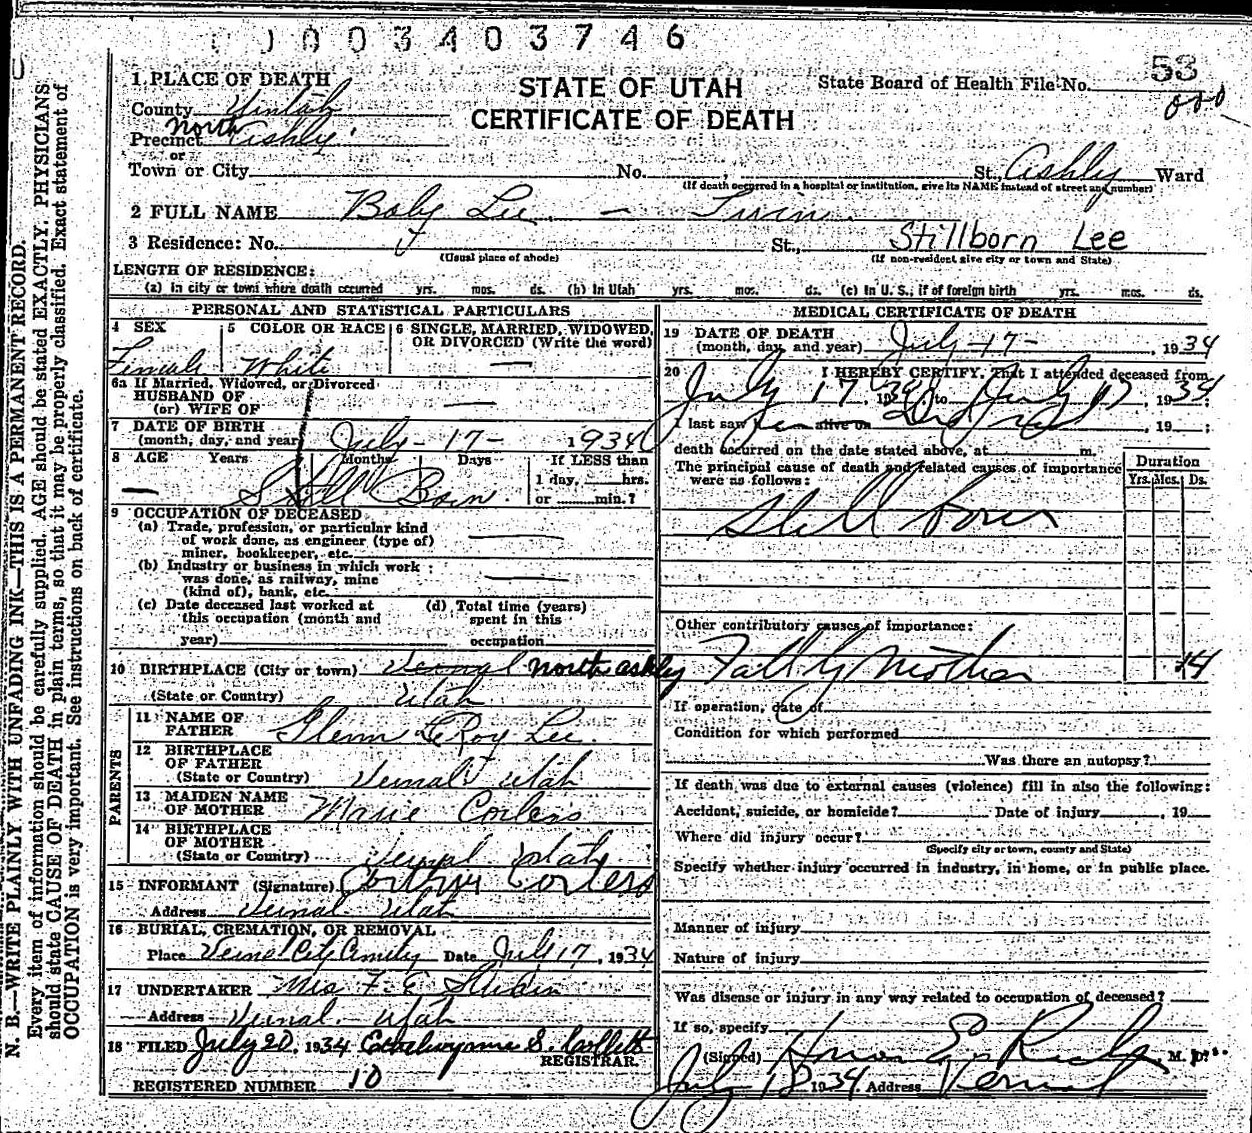 0003403746
1. PLACE OF DEATH
STATE OF UTAH
CERTIFICATE OF DEATH
State Board of Health File No. 53
County Uintah
Precinct North Ashley
or
Town or City No. , St. Ashley Ward
(If death occurred in a hospital or institution, give its NAME instead of street and number)
2 FULL NAME Baby Lee - Twin
3 Residence: No. St., Stillborn Lee
(Usual place of abode) (If non-resident give city or town and State)
LENGTH OF RESIDENCE:
(a) In city or town where death occurred yrs. mos. ds. (b) In Utah yrs. mos. ds. (c) In U. S., if of foreign birth yrs. mos. ds.
PERSONAL AND STATISTICAL PARTICULARS
4 SEX 5 COLOR OR RACE 6 SINGLE, MARRIED, WIDOWED, OR DIVORCED (Write the word)
Female White —
6a If Married, Widowed, or Divorced
HUSBAND OF
(or) WIFE OF —
7 DATE OF BIRTH
(month, day, and year) July - 17 - 1934
8 AGE Years Months Days If LESS than
1 day, hrs.
or min.?
— Still Born.
9 OCCUPATION OF DECEASED
(a) Trade, profession, or particular kind
of work done, as engineer (type of)
miner, bookkeeper, etc. —
(b) Industry or business in which work
was done, as railway, mine
(kind of), bank, etc. —
(c) Date deceased last worked at
this occupation (month and
year)
(d) Total time (years)
spent in this
occupation
10 BIRTHPLACE (City or town) Vernal North Ashley
(State or Country) Utah
PARENTS
11 NAME OF
FATHER Glenn LeRoy Lee.
12 BIRTHPLACE
OF FATHER
(State or Country) Vernal Utah
13 MAIDEN NAME
OF MOTHER Marie Corless
14 BIRTHPLACE
OF MOTHER
(State or Country) Vernal Utah
15 INFORMANT (Signature) Corless
Address Vernal Utah
16 BURIAL, CREMATION, OR REMOVAL
Place Vernal City Date July 17, 1934
17 UNDERTAKER Mrs F. E.
Address Vernal. Utah
18 FILED July 20, 1934 S.
REGISTRAR.
REGISTERED NUMBER 10
MEDICAL CERTIFICATE OF DEATH
19 DATE OF DEATH
(month, day, and year) July - 17 - , 1934
20 I HEREBY CERTIFY, That I attended deceased from
July 17, 1934, to July 17, 1934;
I last saw alive on , 19 ;
death occurred on the date stated above, at m.
The principal cause of death and related causes of importance
were as follows:
Duration
Yrs. Mos. Ds.
Still born
Other contributory causes of importance:
Fall by Mother 14
If operation, date of
Condition for which performed
Was there an autopsy?
If death was due to external causes (violence) fill in also the following:
Accident, suicide, or homicide? Date of injury , 19
Where did injury occur?
(Specify city or town, county and State)
Specify whether injury occurred in industry, in home, or in public place.
Manner of injury
Nature of injury
Was disease or injury in any way related to occupation of deceased?
If so, specify
(Signed) , M. D.
July 18 1934 Address Vernal
N. B.—WRITE PLAINLY WITH UNFADING INK—THIS IS A PERMANENT RECORD.
Every item of information should be carefully supplied. AGE should be stated EXACTLY. PHYSICIANS
should state CAUSE OF DEATH in plain terms, so that it may be properly classified. Exact statement of
OCCUPATION is very important. See instructions on back of certificate.